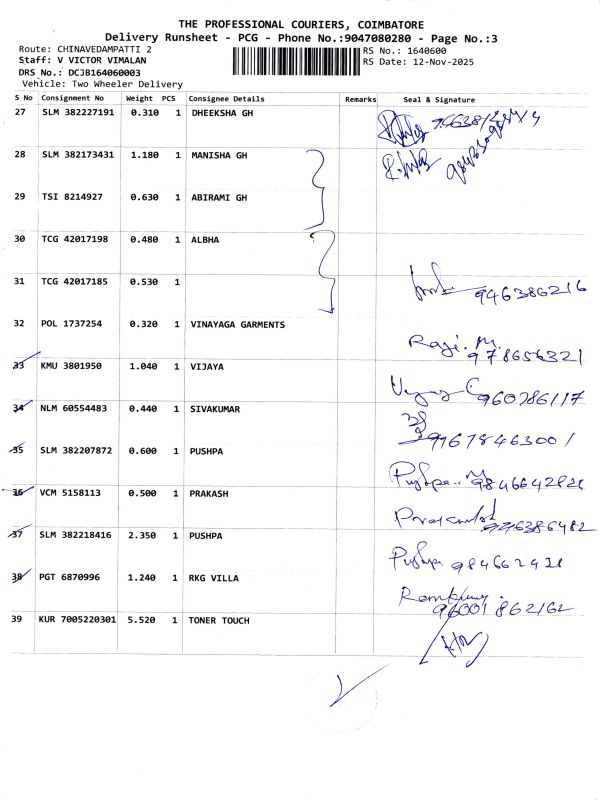 THE PROFESSIONAL COURIERS, COIMBATORE
Delivery Runsheet - PCG - Phone No.:9047080280 - Page No.:3
Route: CHINAVEDAMPATTI 2
Staff: V VICTOR VIMALAN
DRS No.: DCJB164060003
Vehicle: Two Wheeler Delivery
RS No.: 1640600
RS Date: 12-Nov-2025
S No Consignment No Weight PCS Consignee Details Remarks Seal & Signature
27 SLM 382227191 0.310 1 DHEEKSHA GH
28 SLM 382173431 1.180 1 MANISHA GH
29 TSI 8214927 0.630 1 ABIRAMI GH
30 TCG 42017198 0.480 1 ALBHA
31 TCG 42017185 0.530 1
946386216
32 POL 1737254 0.320 1 VINAYAGA GARMENTS
Raji. M.
978656321
33 KMU 3801950 1.040 1 VIJAYA
960786117
34 NLM 60554483 0.440 1 SIVAKUMAR
35 SLM 382207872 0.600 1 PUSHPA
Pushpa
36 VCM 5158113 0.500 1 PRAKASH
37 SLM 382218416 2.350 1 PUSHPA
Pushpa
38 PGT 6870996 1.240 1 RKG VILLA
96001862162
39 KUR 7005220301 5.520 1 TONER TOUCH